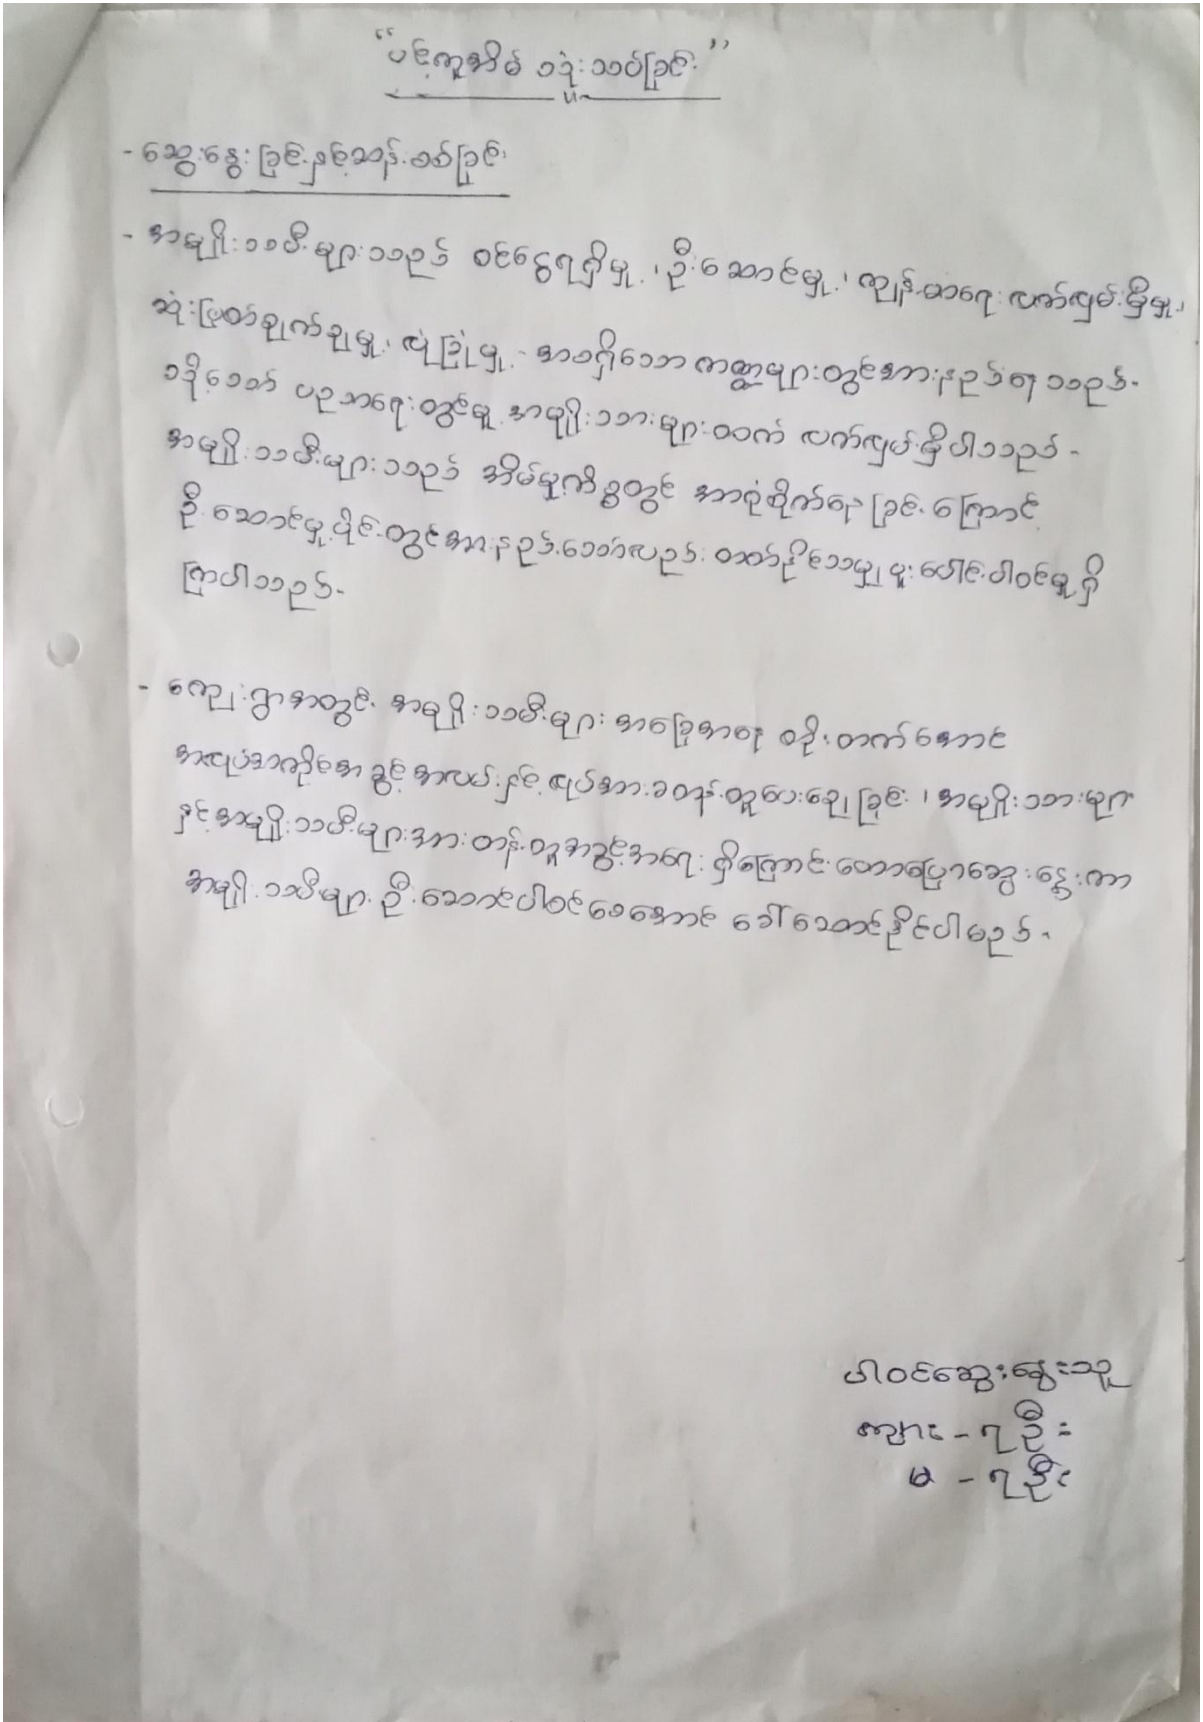 "ပင့်ကူအိမ် သုံးသပ်ခြင်း"
- ဆွေးနွေးခြင်းနှင့်ဆန်းစစ်ခြင်း
- အမျိုးသမီးများသည် ဝင်ငွေရရှိမှု၊ ဦးဆောင်မှု၊ ကျန်းမာရေး လက်လှမ်းမှီမှု၊
ဆုံးဖြတ်ချက်ချမှု၊ လုံခြုံမှု - အစရှိသော ကဏ္ဍများတွင်အားနည်းရသည်-
သို့သော် ပညာရေးတွင်မူ အမျိုးသားများထက် လက်လှမ်းမှီပါသည်-
အမျိုးသမီးများသည် အိမ်မှုကိစ္စတွင် အာရုံစိုက်နေခြင်းကြောင့်
ဦးဆောင်မှုပိုင်းတွင်အားနည်းသော်လည်း တတ်နိုင်သမျှ ပူးပေါင်းပါဝင်မှုရှိ
ကြပါသည်-
- ကျေးရွာအတွင်း အမျိုးသမီးများ အခြေအနေ တိုးတက်အောင်
အလုပ်အကိုင်အခွင့်အလမ်းနှင့် လုပ်အားခတန်းတူပေးချေခြင်း၊ အမျိုးသားများ
နှင့်အမျိုးသမီးများအားတန်းတူအခွင့်အရေးရှိကြောင်းဟောပြောဆွေးနွေးကာ
အမျိုးသမီများ ဦးဆောင်ပါဝင်စေအောင် ခေါ်ဆောင်နိုင်ပါမည်-
ပါဝင်ဆွေးနွေးသူ
ကျား - ၇ ဦး
မ - ၇ ဦး